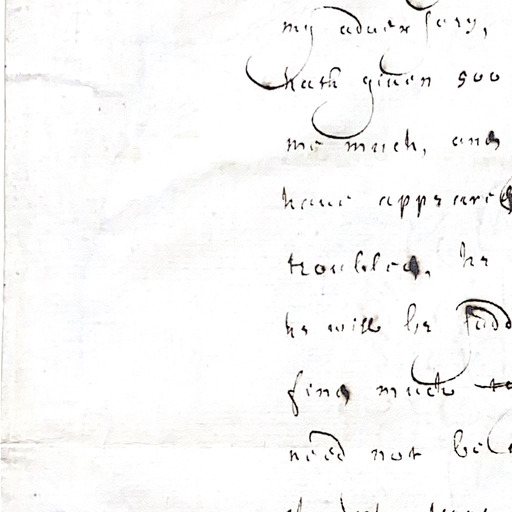 my aduersary,
hath giuen 500
me much, and
haue appeared
troubled, he
he will be
find much to
need not be